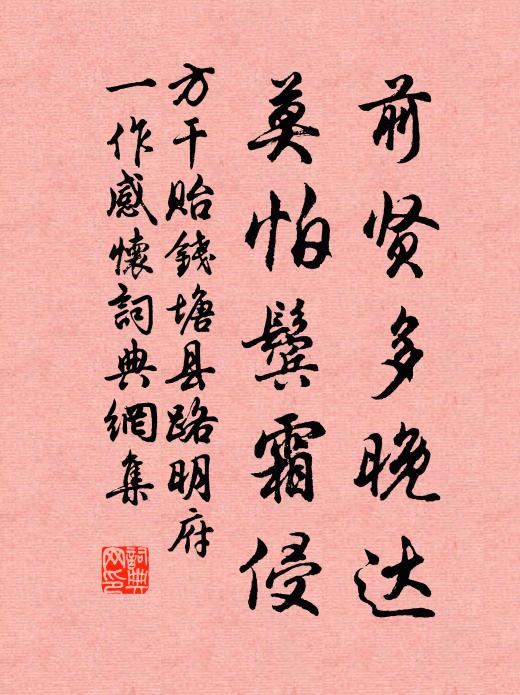 前贤多晚达
莫怕鬓霜侵
方干贻錢塘县路明府
一作感懷詞典網集
詞典網印